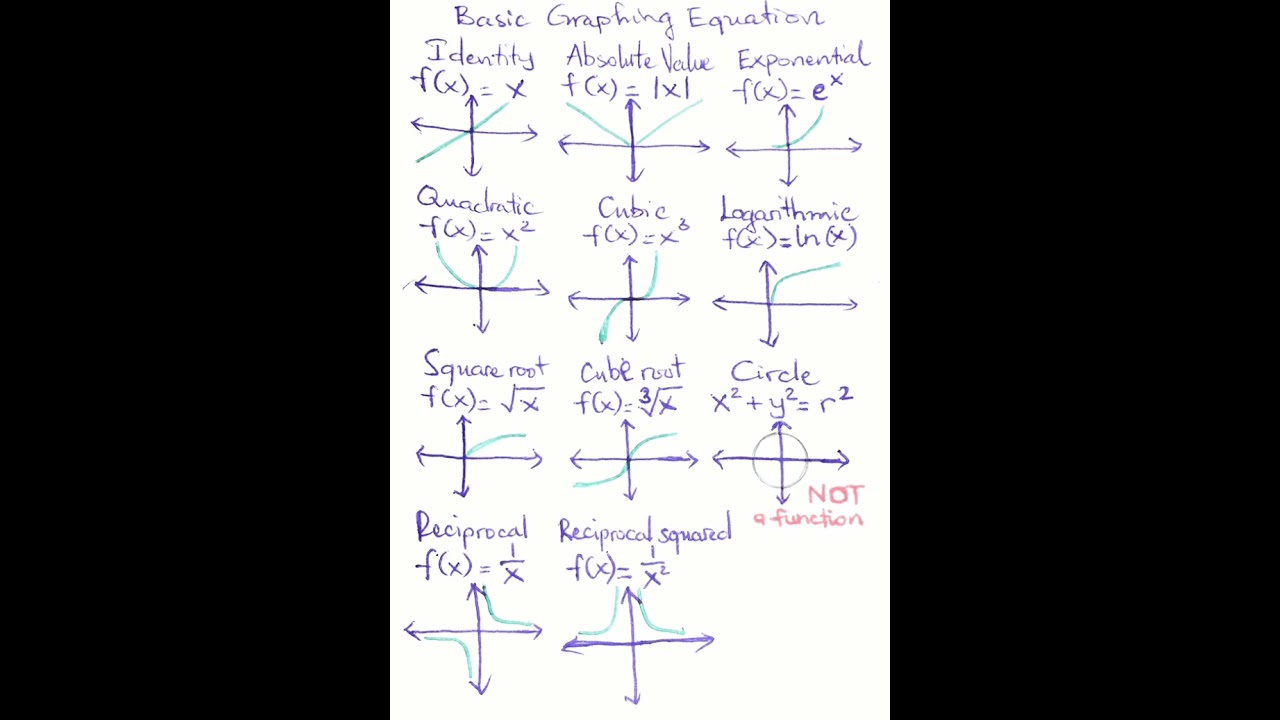 Basic Graphing Equation
Identity
f(x) = x
Absolute Value
f(x) = |x|
Exponential
f(x) = eˣ
Quadratic
f(x) = x²
Cubic
f(x) = x³
Logarithmic
f(x) = ln(x)
Square root
f(x) = √x
Cube root
f(x) = ³√x
Circle
x² + y² = r²
NOT
a function
Reciprocal
f(x) = 1/x
Reciprocal squared
f(x) = 1/x²